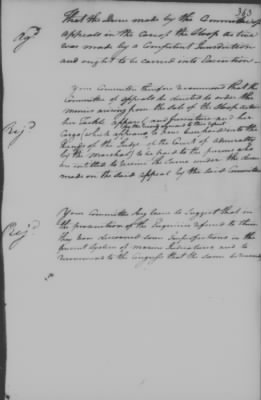 363
Agd
That the decree made by the Committee of
appeals in the Case of the Sloop Active
was made by a Competent Jurisdiction
and ought to be carried into Execution.
Your Committee therefore recommend that the
Committee of appeals be directed to order the
monies arising from the sale of the Sloop Active
her Tackle apparel and furniture and her
Cargo which appears to have been paid into the
Rejd
hands of the Judge of the Court of admiralty
by the Marshal to be paid to the persons who
be entitled to receive the same under the decree
made on the said appeal by the said Committee
Your Committee beg leave to Suggest that in
the prosecution of the Enquiries referred to them
they have discovered some Imperfections in the
present System of marine Jurisdictions and to
recommend to the Congress that the same be